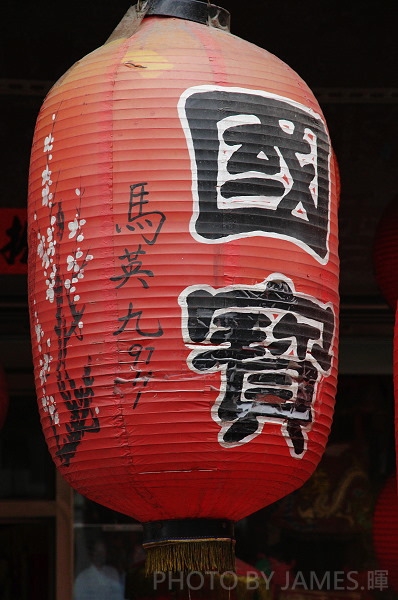 國寶
馬英九
PHOTO BY JAMES.暉